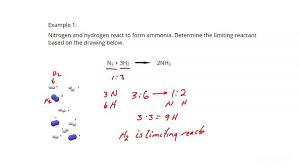 Example 1:
Nitrogen and hydrogen react to form ammonia. Determine the limiting reactant
based on the drawing below.
N₂ + 3H₂ → 2NH₃
1:3
H₂
N₂
3 N
6 H
3:6 → 1:2
N H
3·3 = 9 H
H₂ is limiting react